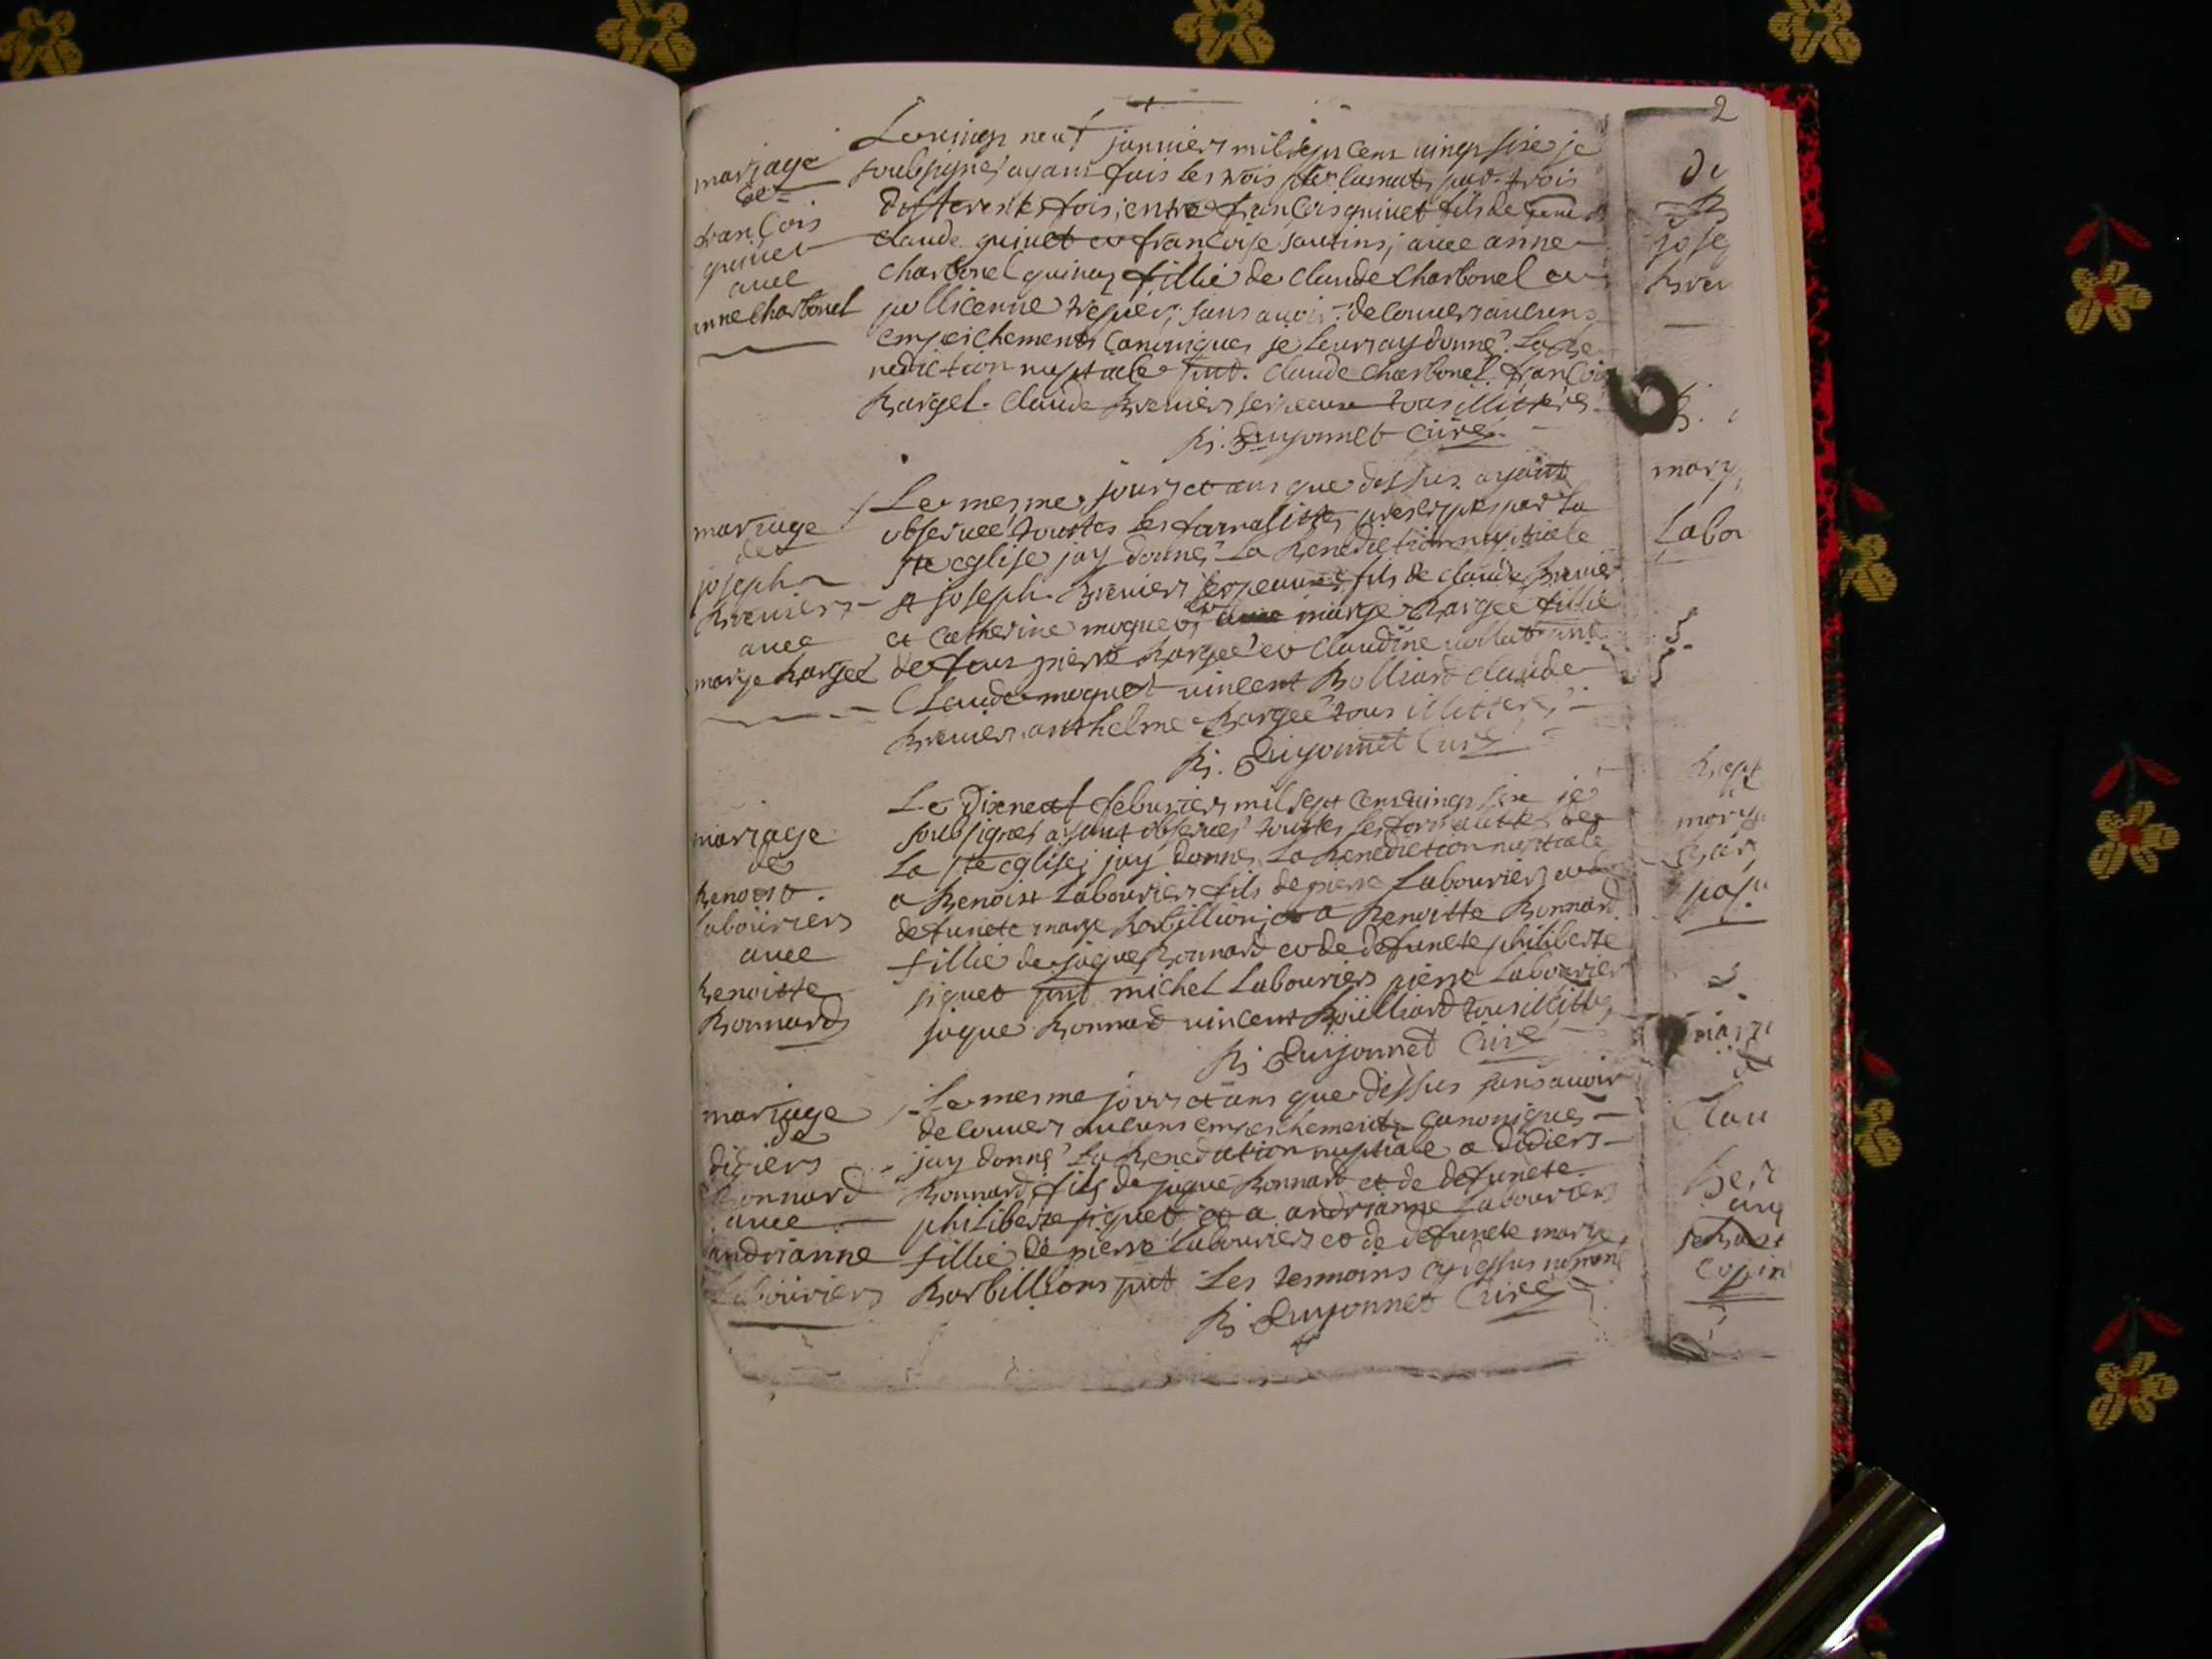 2
mariage
de
françois
quinet
avec
anne Charbonel
Le vingt neuf janvier mil sept cent vingt sixe je
soubsigné ayant fait les trois par trois
differentes fois, entre françois quinet fils de
claude quinet et françoise, avec anne
Charbonel fillie de claude Charbonel et
sans avoir decouvert aucuns
empeschements canoniques je leur ay donné La be
nediction nuptiale pnt. Claude Charbonel françois
Bargel. Claude Brenier tous illitteré
B. Guyonnet Curé
mariage
de
joseph
Breniers
avec
marye bargel
Le mesme jours et ans que dessus ayant
observée touttes les formalittes par La
Ste eglise jay donné La benediction nuptiale
a joseph Brenier fils de claude Brenier
et Catherine moquet et a marye bargel fillie
de feux pierre bargel et Claudine pnt
Claude moquet vincent Bolliard claude
Brenier anthelme Bargel tous illitteré
B. Guyonnet Curé
mariage
de
Benoist
labouriers
avec
Benoitte
Bonnard
Le Dixneuf feburiers mil sept cent vingt sixe je
soubsigné ayant observée touttes les formalittes de
La Ste eglise jay donné La benediction nuptiale
a Benoist Labouriers fils de pierre Labouriers et de
defuncte marye barbillion; et a Benoitte Bonnard
fillie de jaque Bonnard et de defuncte philiberte
piquet pnt michel Labouriers pierre Labourier
jaque Bonnard vincent Boulliard tous illitté
B. Guyonnet Curé
mariage
de
didiers
Bonnard
avec
andrianne
Labouriers
Le mesme jours et ans que dessus sans avoir
decouvers aucuns empeschements canoniques
jay donné La benediction nuptiale a Didiers
Bonnard fils de jaque Bonnard et de defuncte
philiberte piquet et a andrianne Labouriers
fillie de pierre Labouriers et de defuncte marye
Barbillions pnt Les tesmoins cy dessus nommé
B. Guyonnet Curé